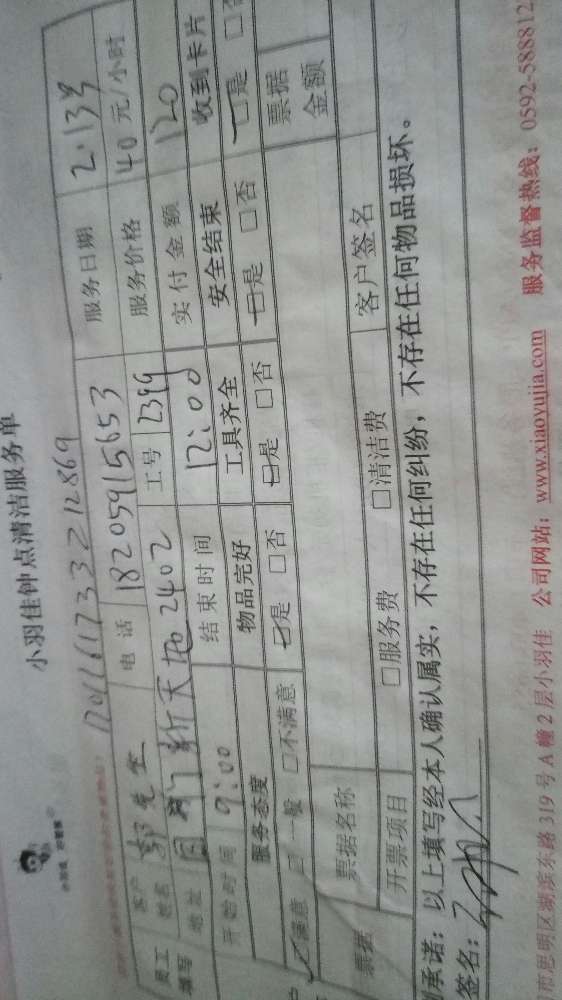 小羽佳钟点清洁服务单
1701161733212869
员工填写 客户姓名 郭先生 电话 18205915653 服务日期 2.13号
地址 新天地2402 工号 2399 服务价格 40元/小时
开始时间 9:00 结束时间 12:00 实付金额 120
服务态度 物品完好 工具齐全 安全结束 收到卡片
满意 □一般 □不满意 □是 □否 □是 □否 □是 □否 □是
票据 票据名称 票据金额
开票项目 □服务费 □清洁费 客户签名
承诺：以上填写经本人确认属实，不存在任何纠纷，不存在任何物品损坏。
签名：
市思明区湖滨东路319号A幢2层小羽佳 公司网站：www.xiaoyujia.com 服务监督热线：0592-5888812